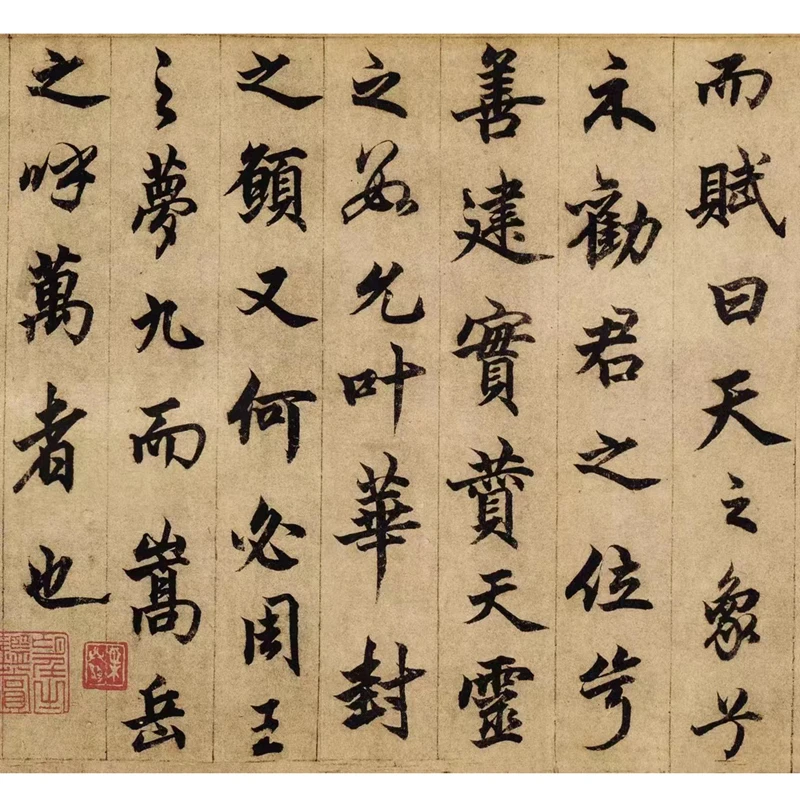 而賦曰天之象兮
示勸君之位兮
善建實蕡天靈
之允叶華封
之願又何必周王
之夢九而嵩岳
之呼萬者也